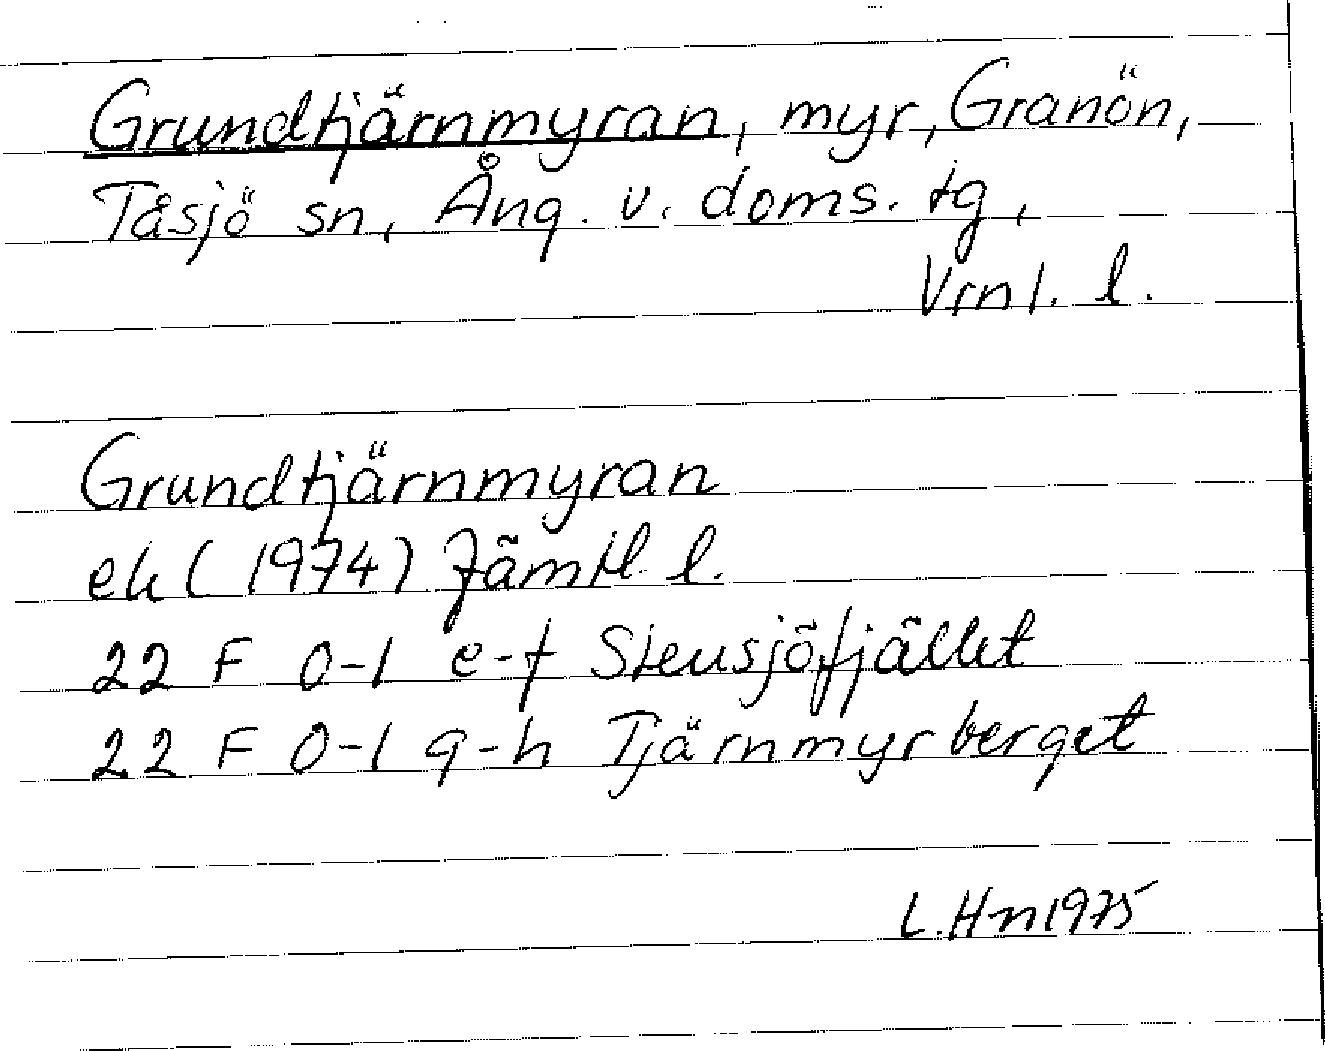 Grundtjärnmyran, myr, Granön,
Tåsjö sn, Ång. v. doms. tg,
Vrnl. l.
Grundtjärnmyran
ek (1974) Jämtl. l.
22 F 0-1 e-f Steusjöfjället
22 F 0-1 g-h Tjärnmyrberget
L. Hn 1975